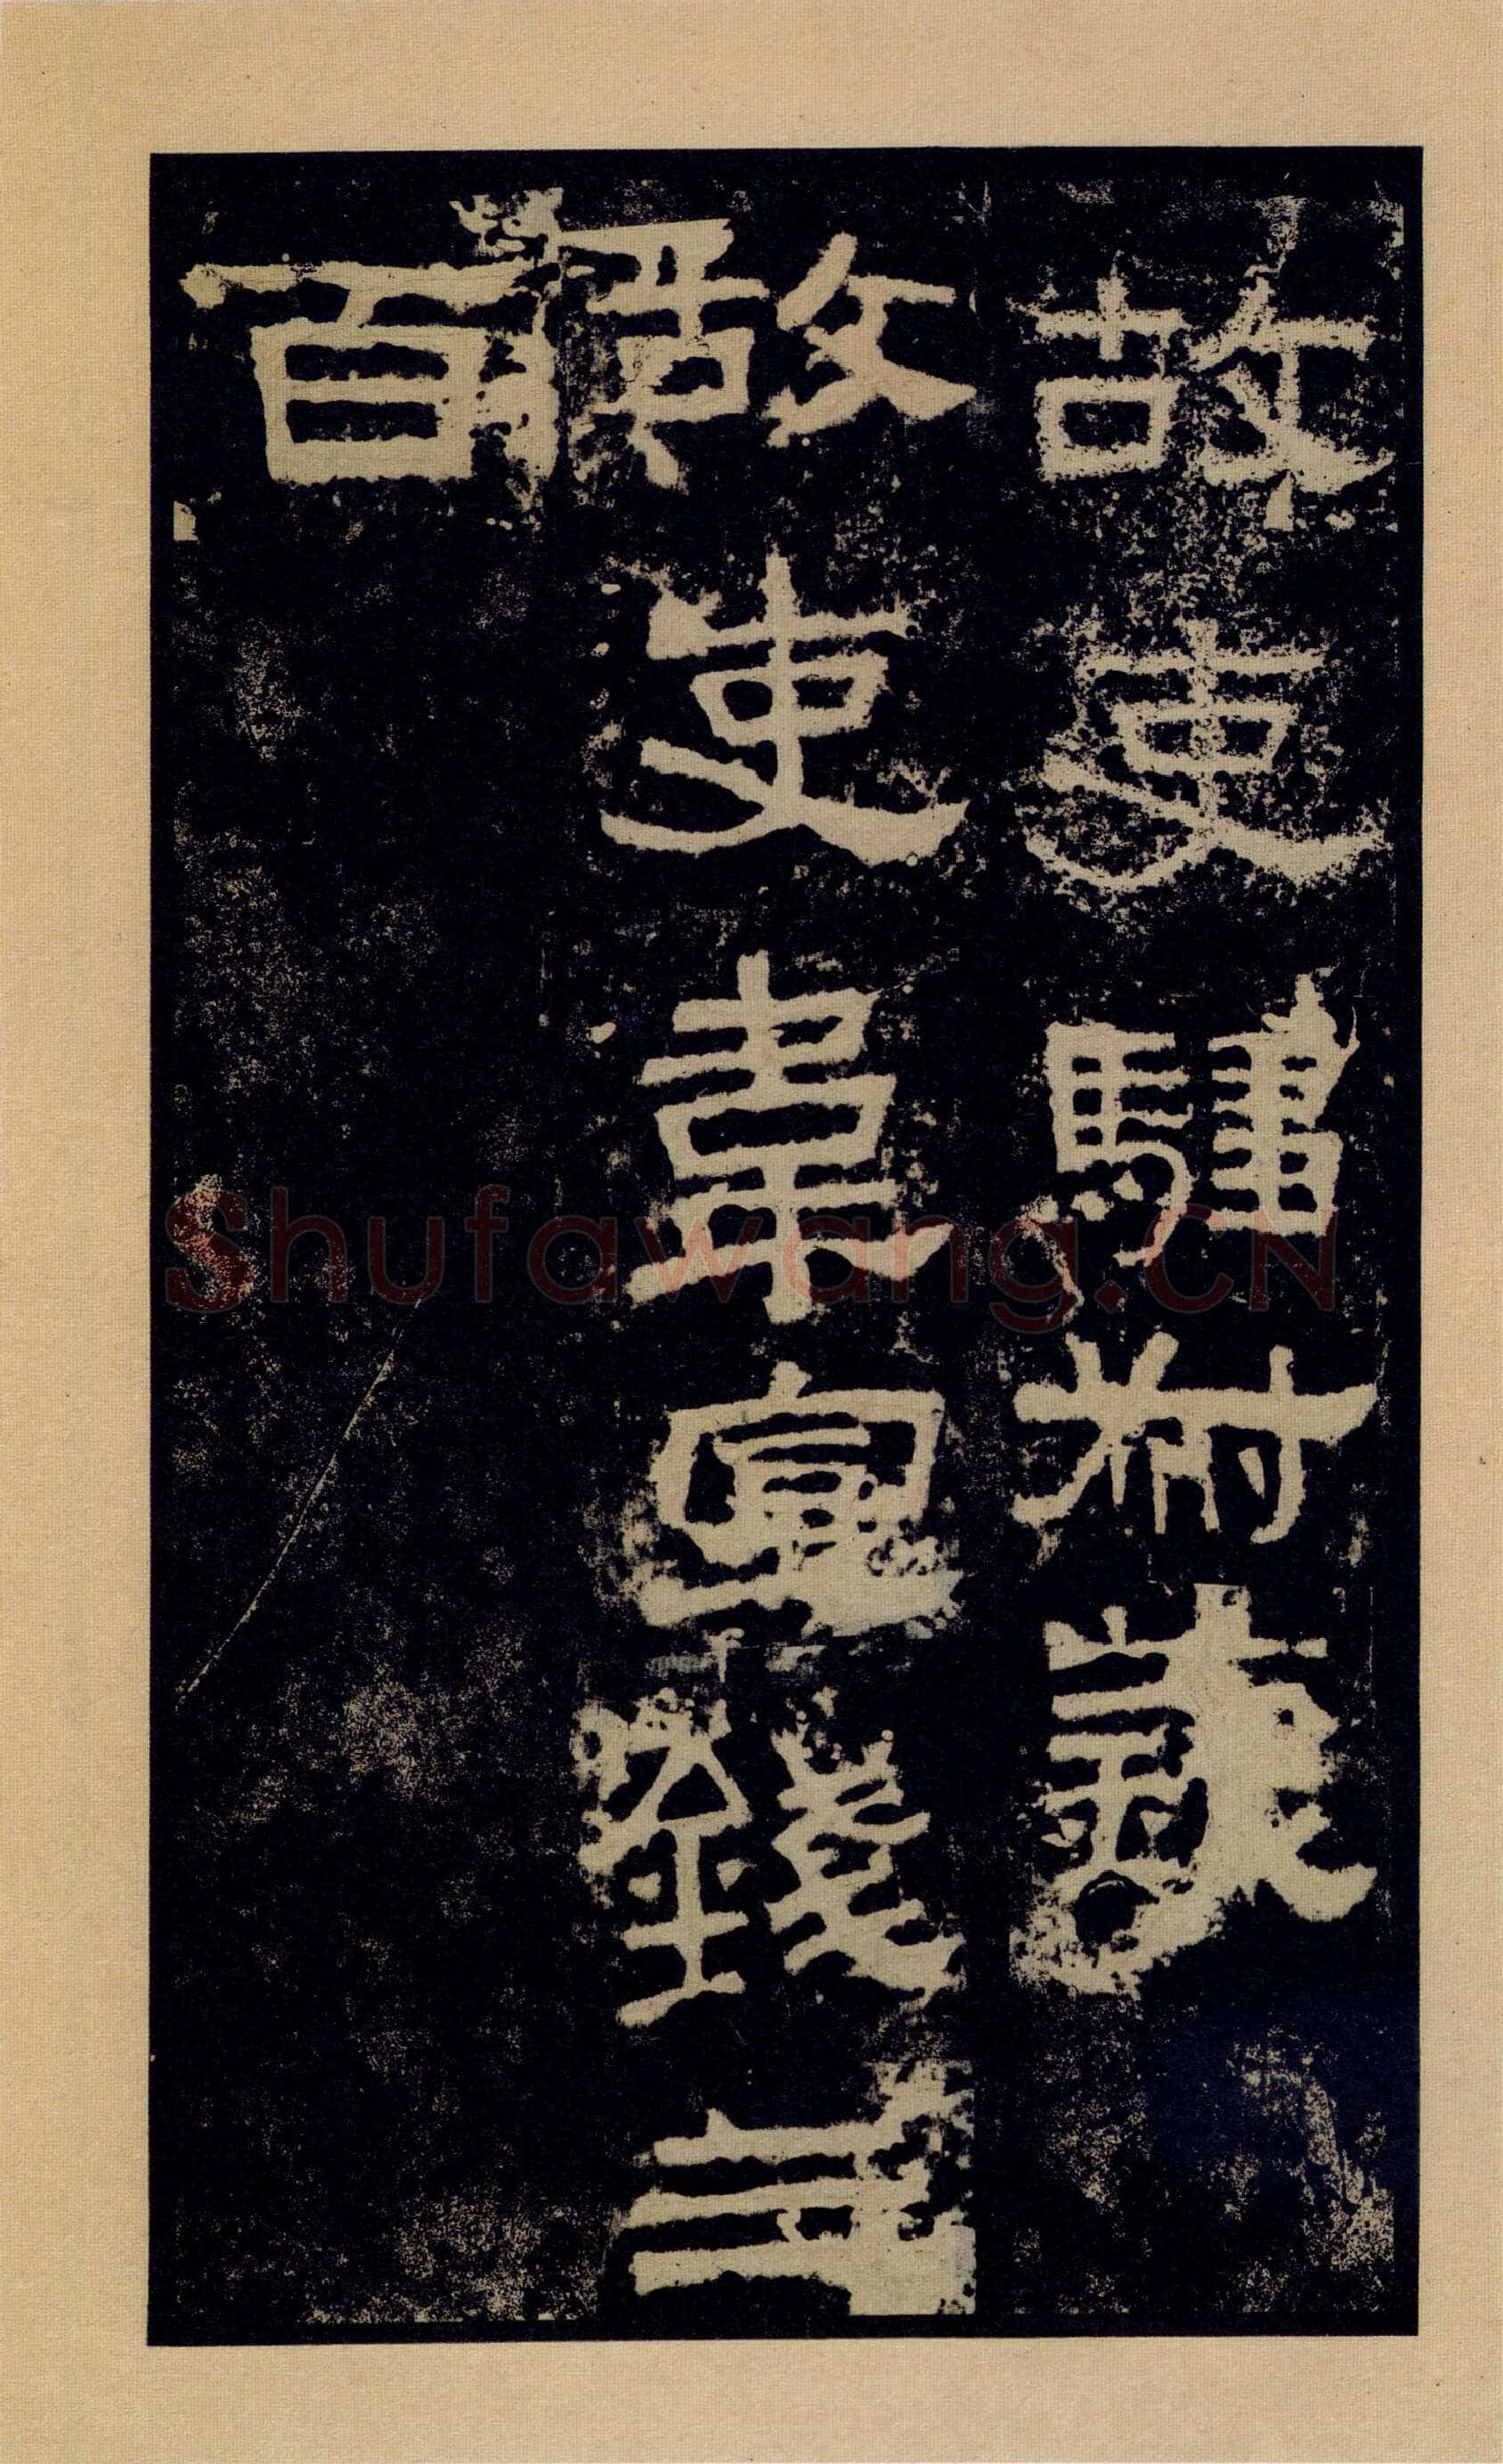 故吏騶叔義
故吏韋宣錢三
百
Shufawang.CN